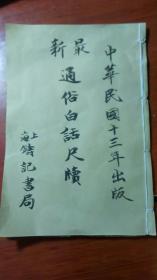 中華民國十三年出版
最新
通俗白話尺牘
上海鑄記書局